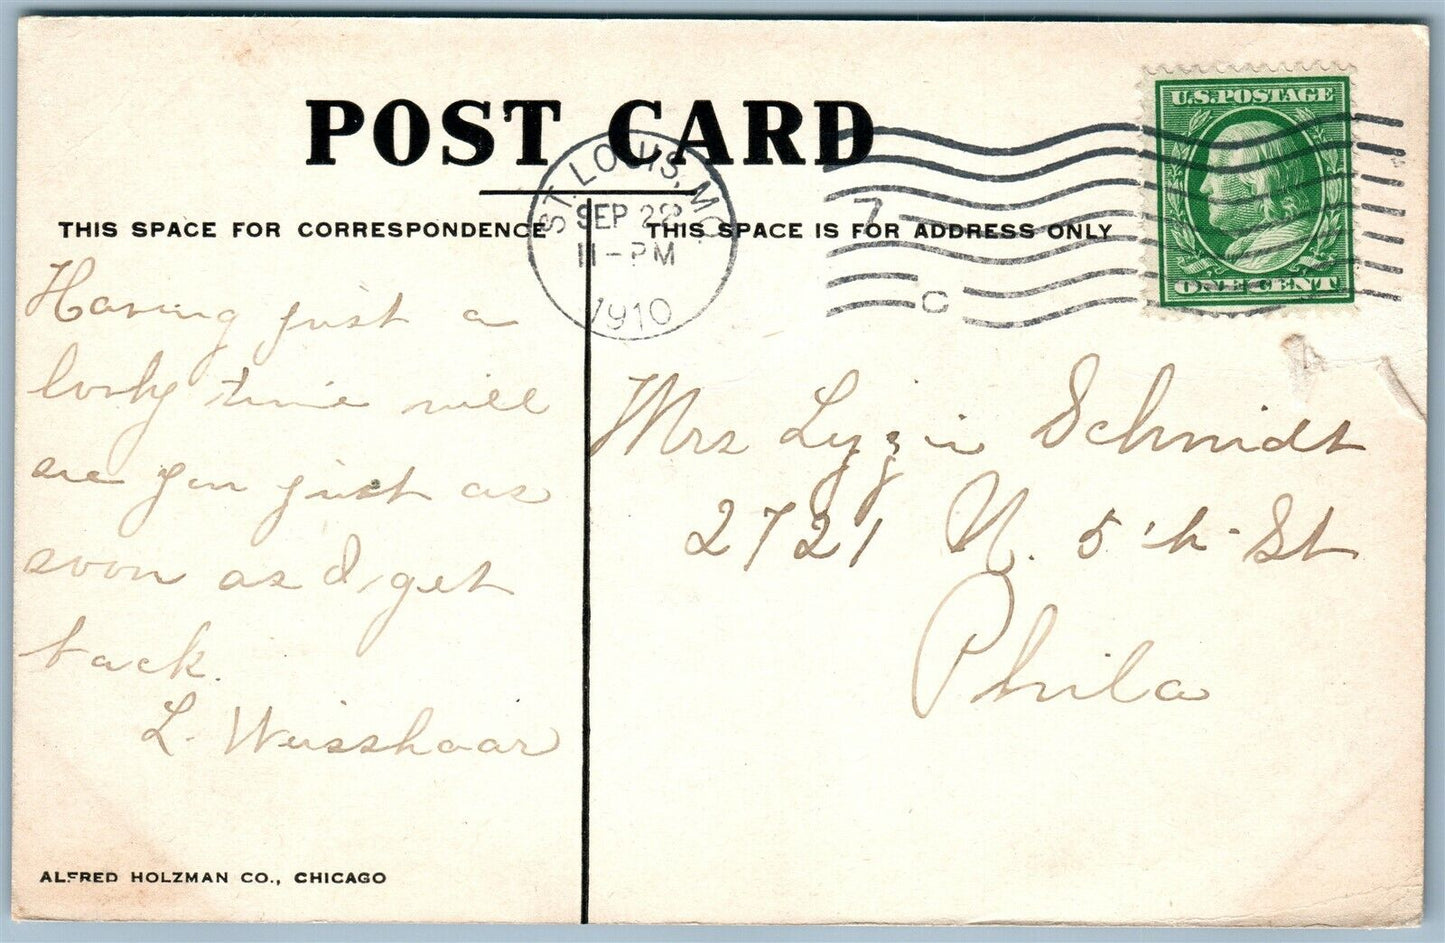 POST CARD
ST. LOUIS, MO.
SEP 22
11-PM
1910
7
C
U.S. POSTAGE
ONE CENT
THIS SPACE FOR CORRESPONDENCE
THIS SPACE IS FOR ADDRESS ONLY
Having just a
lovly time will
see you just as
soon as I get
back.
L. Weisshaar
Mrs Lyzzie Schmidt
2721 N. 5th St
Phila
ALFRED HOLZMAN CO., CHICAGO